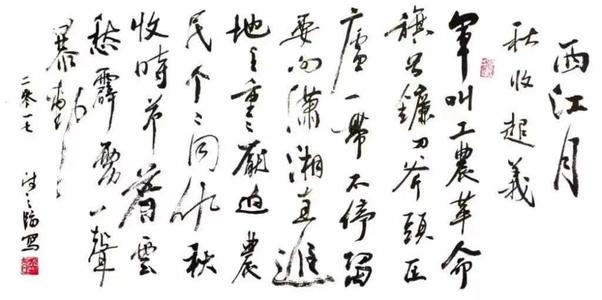 西江月
秋收起義
軍叫工農革命
旗号鐮刀斧頭匡
廬一帶不停留
要向瀟湘直進
地主重々壓迫農
民个々同仇秋
收時節暮雲
愁霹靂一聲
暴動
二零一七
写